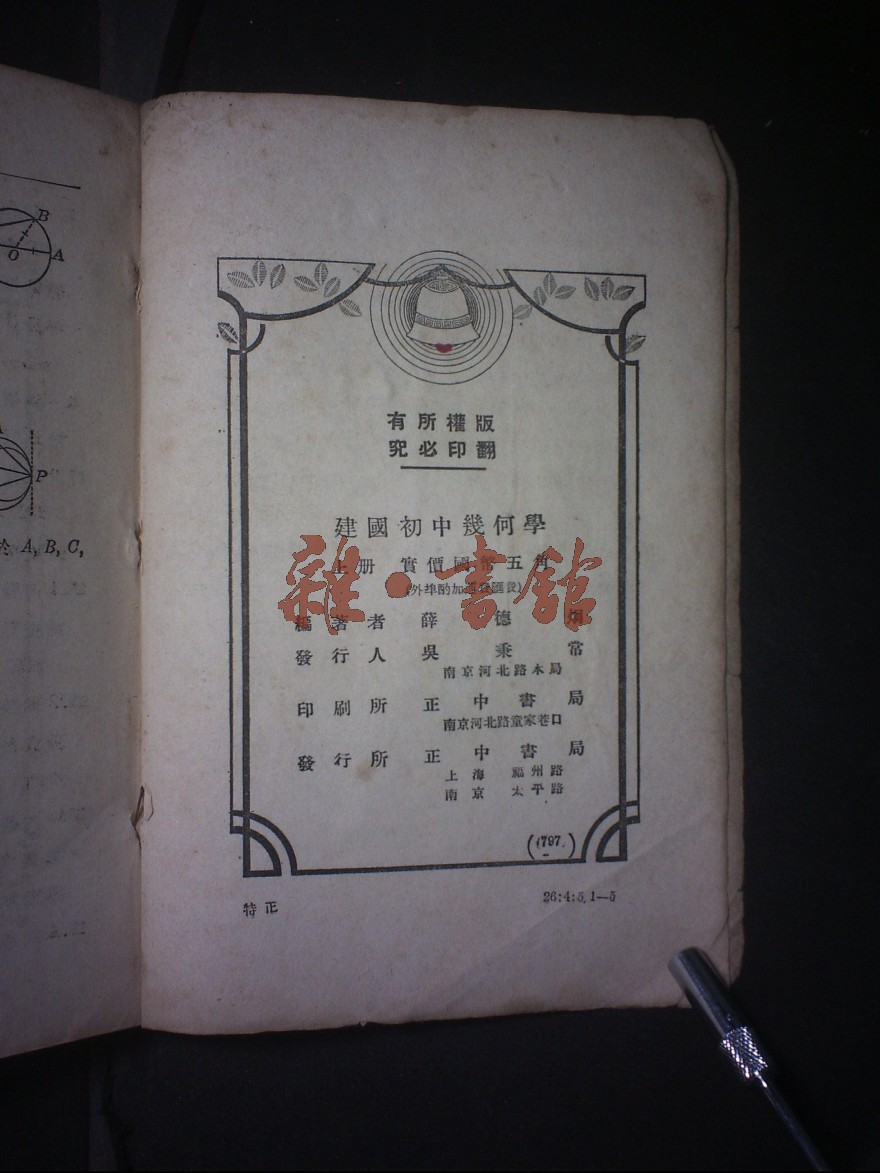 B
O
A
P
於 A, B, C,
版權所有
翻印必究
建國初中幾何學
上册 實價國幣五角
(外埠酌加運費匯費)
編著者 薛德烱
發行人 吳秉常
南京河北路本局
印刷所 正中書局
南京河北路童家巷口
發行所 正中書局
上海福州路
南京太平路
(797)
特正
26:4:5, 1—5
雜·書館